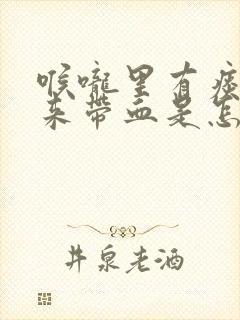 喉咙里有痰
来带血是怎
井泉老酒